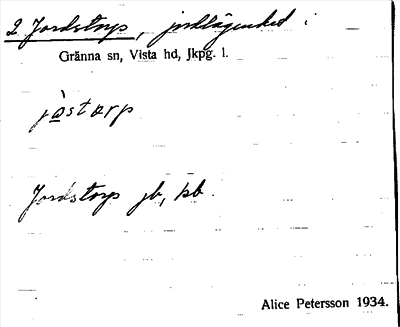 2 Jordstorp, jordlägenhet i
Gränna sn, Vista hd, Jkpg. l.
jòstarp
Jordstorp jb, kb.
Alice Petersson 1934.